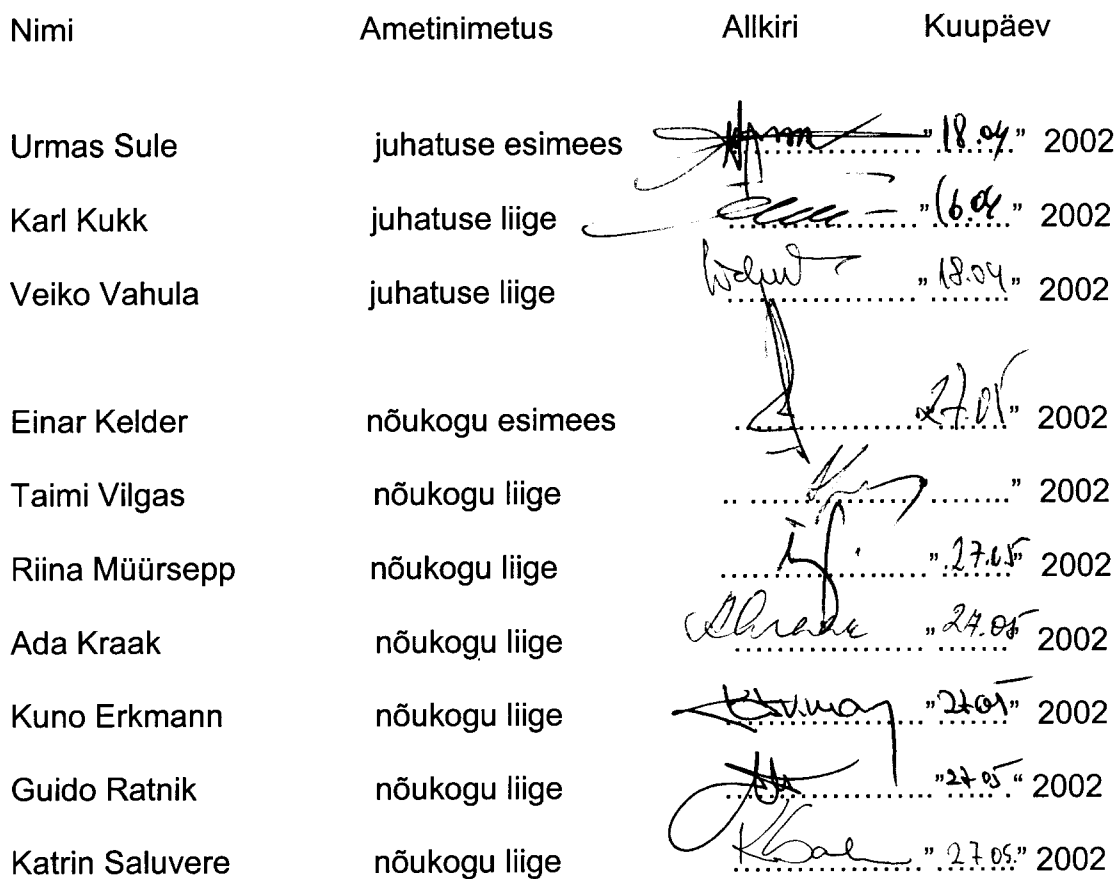 Nimi Ametinimetus Allkiri Kuupäev
Urmas Sule juhatuse esimees "18.04" 2002
Karl Kukk juhatuse liige "16.04" 2002
Veiko Vahula juhatuse liige "18.04" 2002
Einar Kelder nõukogu esimees 27.05" 2002
Taimi Vilgas nõukogu liige " 2002
Riina Müürsepp nõukogu liige "27.05" 2002
Ada Kraak nõukogu liige "27.05" 2002
Kuno Erkmann nõukogu liige "27.05" 2002
Guido Ratnik nõukogu liige "27.05" 2002
Katrin Saluvere nõukogu liige "27.05." 2002